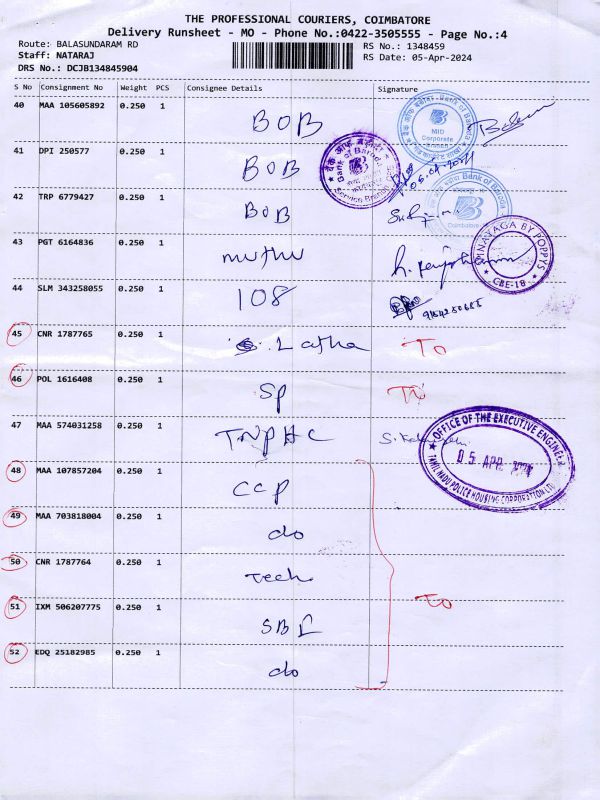 THE PROFESSIONAL COURIERS, COIMBATORE
Delivery Runsheet - MO - Phone No.:0422-3505555 - Page No.:4
Route: BALASUNDARAM RD
RS No.: 1348459
Staff: NATARAJ
RS Date: 05-Apr-2024
DRS No.: DCJB134845904
S No Consignment No Weight PCS Consignee Details Signature
40 MAA 105605892 0.250 1 BOB
41 DPI 250577 0.250 1 BOB
42 TRP 6779427 0.250 1 BOB
43 PGT 6164836 0.250 1 muthu
44 SLM 343258055 0.250 1 108
45 CNR 1787765 0.250 1 S. Latha To
46 POL 1616408 0.250 1 SP To
47 MAA 574031258 0.250 1 TNPHC
48 MAA 107857204 0.250 1 CCP
49 MAA 703818004 0.250 1 do
50 CNR 1787764 0.250 1 Tech
51 IXM 506207775 0.250 1 SBI To
52 EDQ 25182985 0.250 1 do
Bank of Baroda
MID
Corporate
Branch
Bank of Baroda
Service Branch
Bank of Baroda
Coimbatore
VINAYAGA BY POPPYS
CBE-18
OFFICE OF THE EXECUTIVE ENGINEER
05 APR
TAMIL NADU POLICE HOUSING CORPORATION LTD